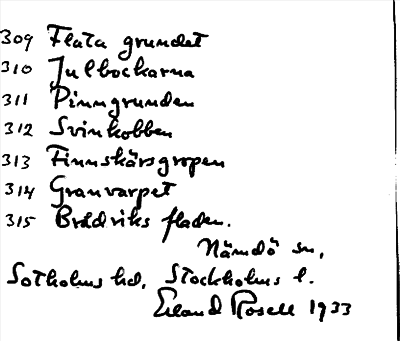 309 Flata grundet
310 Julbockarna
311 Pinngrunden
312 Svinkobben
313 Finnskärsgropen
314 Granvarpet
315 Brädviks fladen.
Nämdö sn,
Sotholms hd, Stockholms l.
Erland Rosell 1933